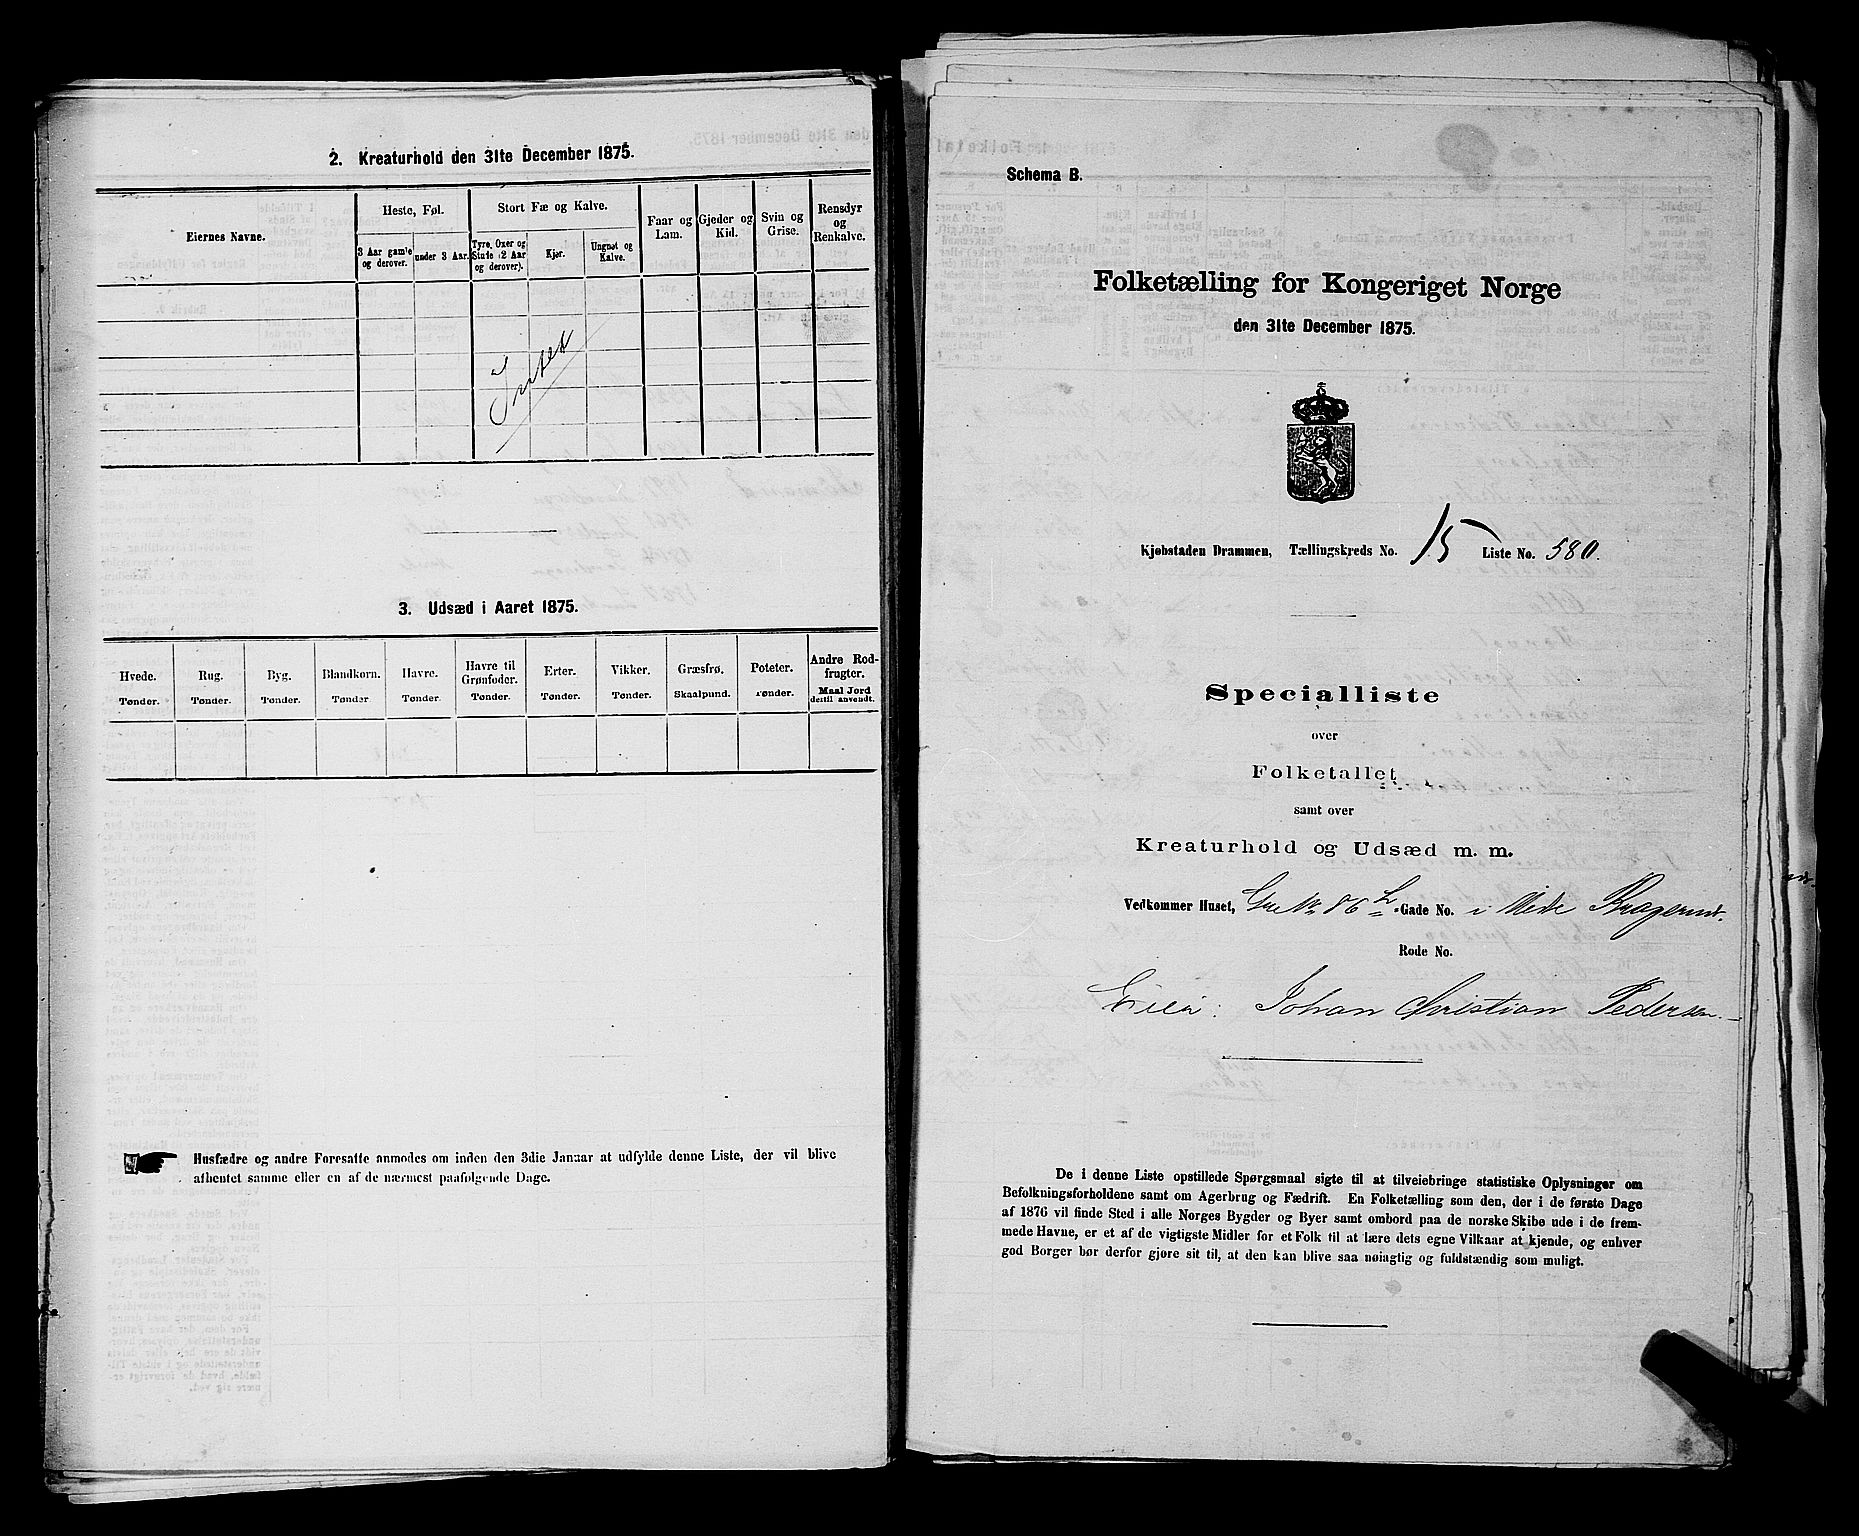 2. Kreaturhold den 31te December 1875.
Eiernes Navne.
Heste, Føl.
Stort Fæ og Kalve.
Faar og Lam.
Gjeder og Kid.
Svin og Grise.
Rensdyr og Renkalve.
3 Aar gamle og derover.
under 3 Aar.
Tyre, Oxer og Stude (2 Aar og derover).
Kjør.
Ungnøt og Kalve.
Intet
3. Udsæd i Aaret 1875.
Hvede. Rug. Byg. Blandkorn. Havre. Havre til Grønfoder. Erter. Vikker. Græsfrø. Poteter. Andre Rodfrugter.
Tønder. Tønder. Tønder. Tønder Tønder. Tønder. Tønder. Tønder. Skaalpund. Tønder. Maal Jord dertil anvendt.
Husfædre og andre Foresatte anmodes om inden den 3die Januar at udfylde denne Liste, der vil blive
afhentet samme eller en af de nærmest paafølgende Dage.
Schema B.
Folketælling for Kongeriget Norge
den 31te December 1875.
Kjøbstaden Drammen, Tællingskreds No. 15 Liste No. 580.
Specialliste
over
Folketallet
samt over
Kreaturhold og Udsæd m. m.
Vedkommer Huset, 86 Gade No. i Bragernes.
Rode No.
Eier: Johan Christian Pedersen.
De i denne Liste opstillede Spørgsmaal sigte til at tilveiebringe statistiske Oplysninger om
Befolkningsforholdene samt om Agerbrug og Fædrift. En Folketælling som den, der i de første Dage
af 1876 vil finde Sted i alle Norges Bygder og Byer samt ombord paa de norske Skibe ude i de frem-
mede Havne, er et af de vigtigste Midler for et Folk til at lære dets egne Vilkaar at kjende, og enhver
god Borger bør derfor gjøre sit til, at den kan blive saa nøiagtig og fuldstændig som muligt.